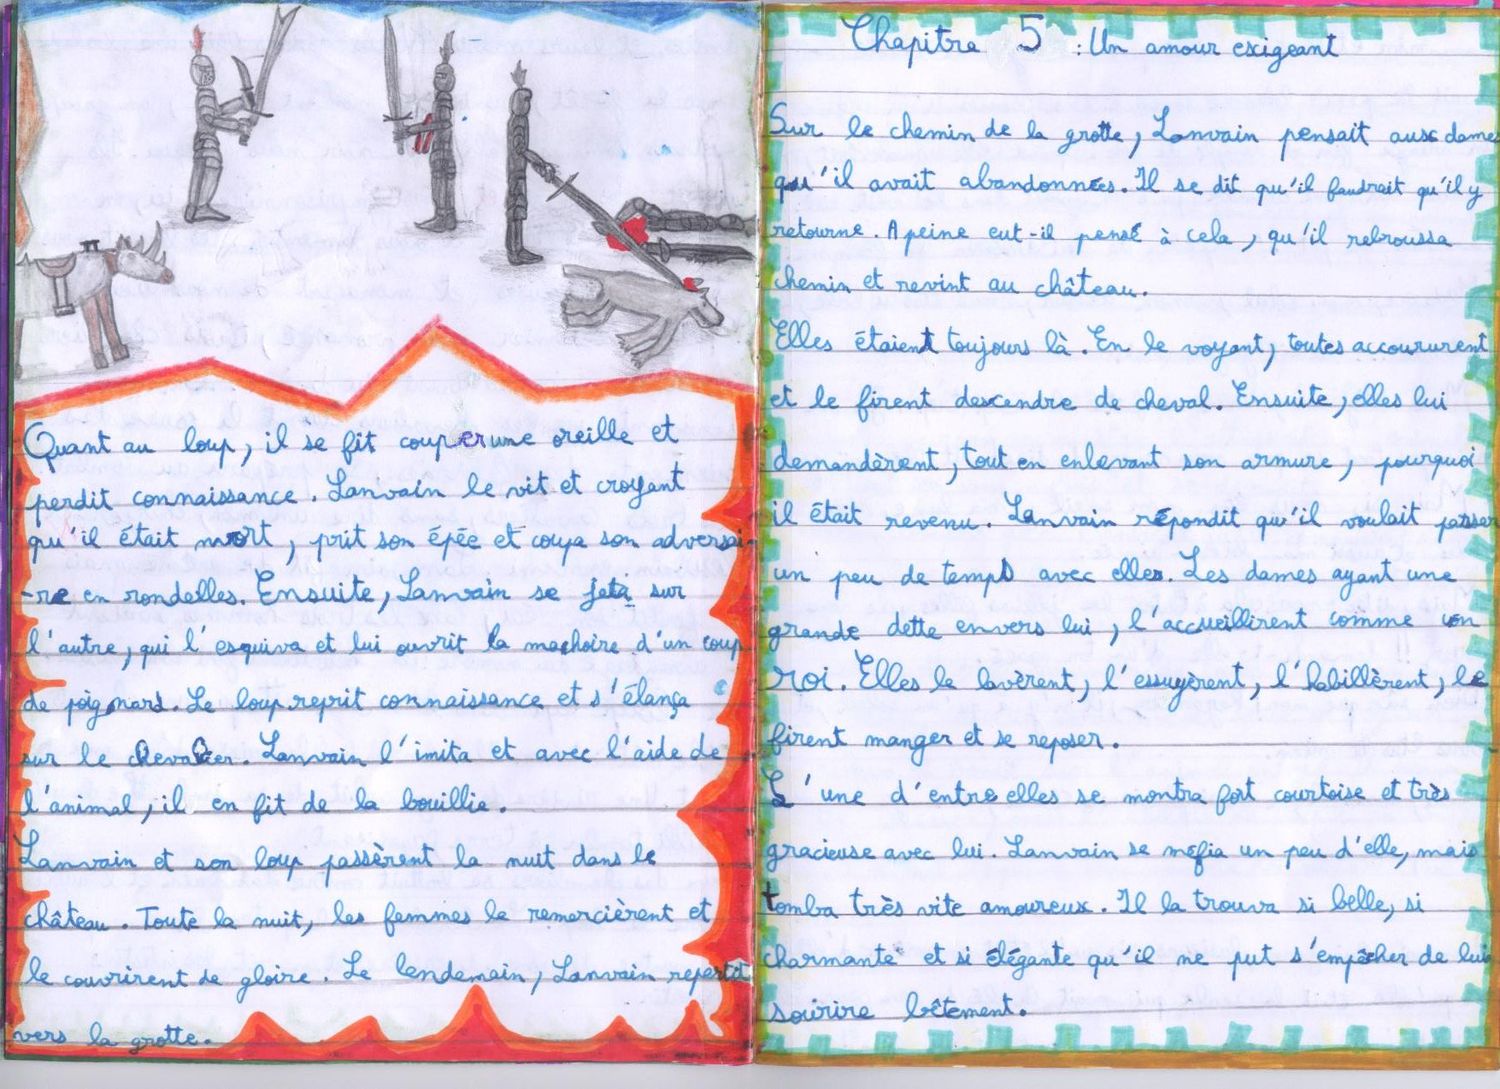 Quant au loup, il se fit couper une oreille et
perdit connaissance. Lanvain le vit et croyant
qu'il était mort, prit son épée et coupa son adversai-
-re en rondelles. Ensuite, Lanvain se jeta sur
l'autre, qui l'esquiva et lui ouvrit la machoire d'un coup
de poignard. Le loup reprit connaissance et s'élança
sur le chevalier. Lanvain l'imita et avec l'aide de
l'animal, il en fit de la bouillie.
Lanvain et son loup passèrent la nuit dans le
château. Toute la nuit, les femmes le remercièrent et
le couvrirent de gloire. Le lendemain, Lanvain repartit
vers la grotte.
Chapitre 5 : Un amour exigeant
Sur le chemin de la grotte, Lanvain pensait aux dames
qu'il avait abandonnées. Il se dit qu'il faudrait qu'il y
retourne. A peine eut-il pensé à cela, qu'il rebroussa
chemin et revint au château.
Elles étaient toujours là. En le voyant, toutes accoururent
et le firent descendre de cheval. Ensuite, elles lui
demandèrent, tout en enlevant son armure, pourquoi
il était revenu. Lanvain répondit qu'il voulait passer
un peu de temps avec elles. Les dames ayant une
grande dette envers lui, l'accueillirent comme un
roi. Elles le lavèrent, l'essuyèrent, l'habillèrent, le
firent manger et se reposer.
L'une d'entre elles se montra fort courtoise et très
gracieuse avec lui. Lanvain se méfia un peu d'elle, mais
tomba très vite amoureux. Il la trouva si belle, si
charmante et si élégante qu'il ne put s'empêcher de lui
sourire bêtement.